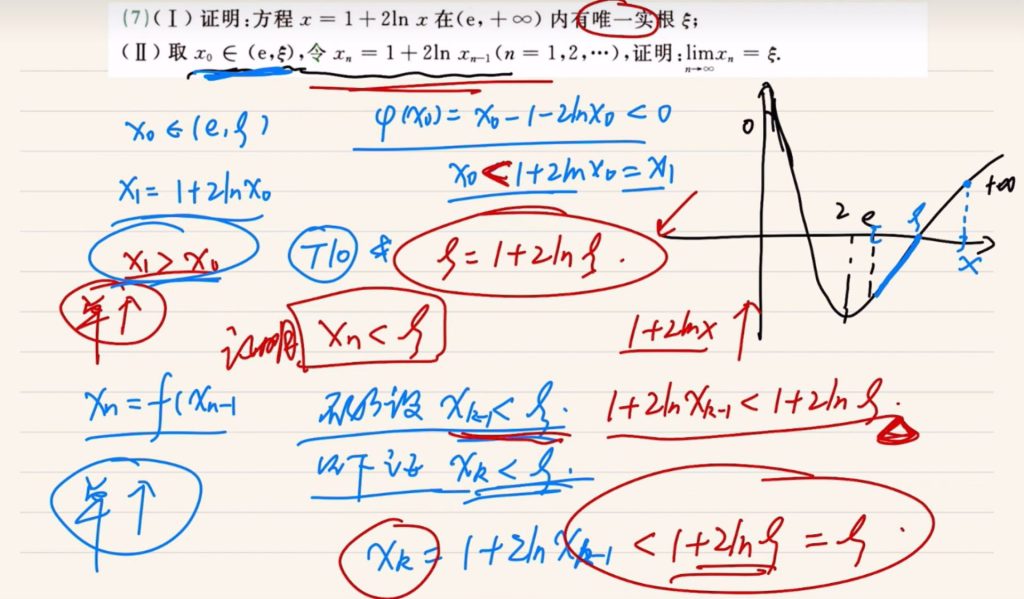 (7)(Ⅰ)证明:方程 x = 1 + 2ln x 在(e, +∞)内有唯一实根 ξ;
(Ⅱ)取 x₀ ∈ (e,ξ),令 xₙ = 1 + 2ln xₙ₋₁(n = 1,2,⋯),证明:lim xₙ = ξ.
n→∞
x₀ ∈ (e, ξ)
φ(x₀) = x₀ - 1 - 2lnx₀ < 0
x₁ = 1 + 2lnx₀
x₀ < 1 + 2lnx₀ = x₁
x₁ > x₀
单↑
ξ = 1 + 2lnξ.
证明 xₙ < ξ
0
2
e
ξ
+∞
x
1+2lnx ↑
xₙ = f(xₙ₋₁
不妨设 xₖ₋₁ < ξ.
1 + 2lnxₖ₋₁ < 1 + 2lnξ.
以下证 xₖ < ξ.
单↑
xₖ = 1 + 2lnxₖ₋₁ < 1 + 2lnξ = ξ.